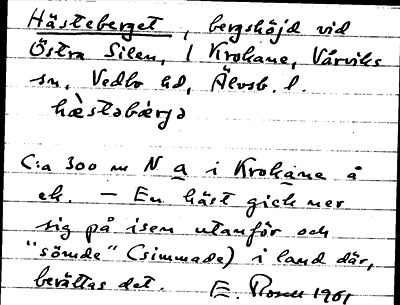 Hästeberget, bergshöjd vid
Östra Silen, 1 Krokane, Vårviks
sn, Vedbo hd, Älvsb. l.
hæ̀stəbærjə
C:a 300 m N a i Krokane å
ek. — En häst gick ner
sig på isen utanför och
"sömde" (simmade) i land där,
berättas det. E. 1961